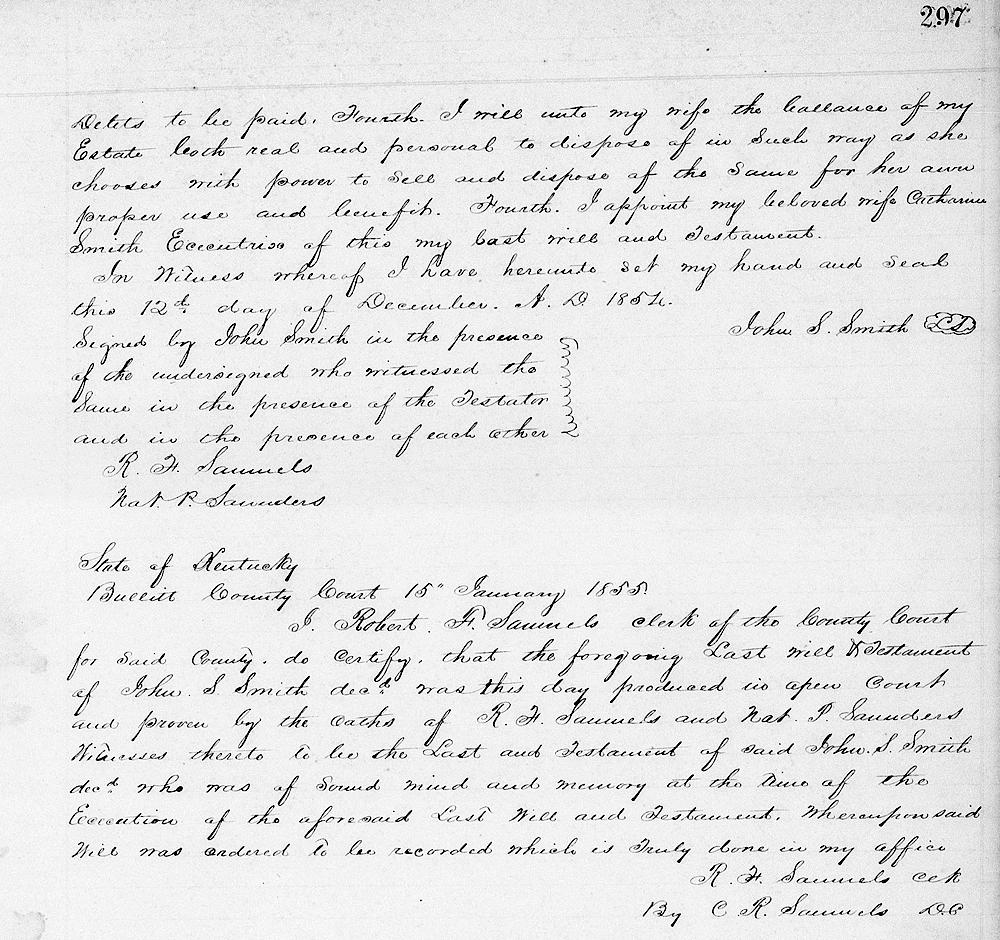 297
Debts to be paid. Fourth. I will unto my wife the ballance of my
Estate both real and personal to dispose of in Such way as she
chooses with power to Sell and dispose of the Same for her own
proper use and benefit. Fourth. I appoint my beloved wife Catharine
Smith Executrix of this my last will and Testament.
In Witness whereof I have hereunto set my hand and seal
this 12d day of December. A. D. 1854.
John S. Smith
Signed by John Smith in the presence
of the undersigned who witnessed the
Same in the presence of the Testator
and in the presence of each other
R. F. Samuels
Nat. P. Saunders
State of Kentucky
Bullitt County Court 15" January 1855.
I. Robert. F. Samuels clerk of the County Court
for Said County. do certify. that the foregoing Last will & Testament
of John. S. Smith decd was this day produced in open Court
and proven by the oaths of R. F. Samuels and Nat. P. Saunders
Witnesses thereto to be the Last and Testament of said John. S. Smith
decd who was of Sound mind and memory at the time of the
Execution of the aforesaid Last Will and Testament. Whereupon said
Will was ordered to be recorded which is Truly done in my office
R. F. Samuels Clk
By C R. Samuels D.C